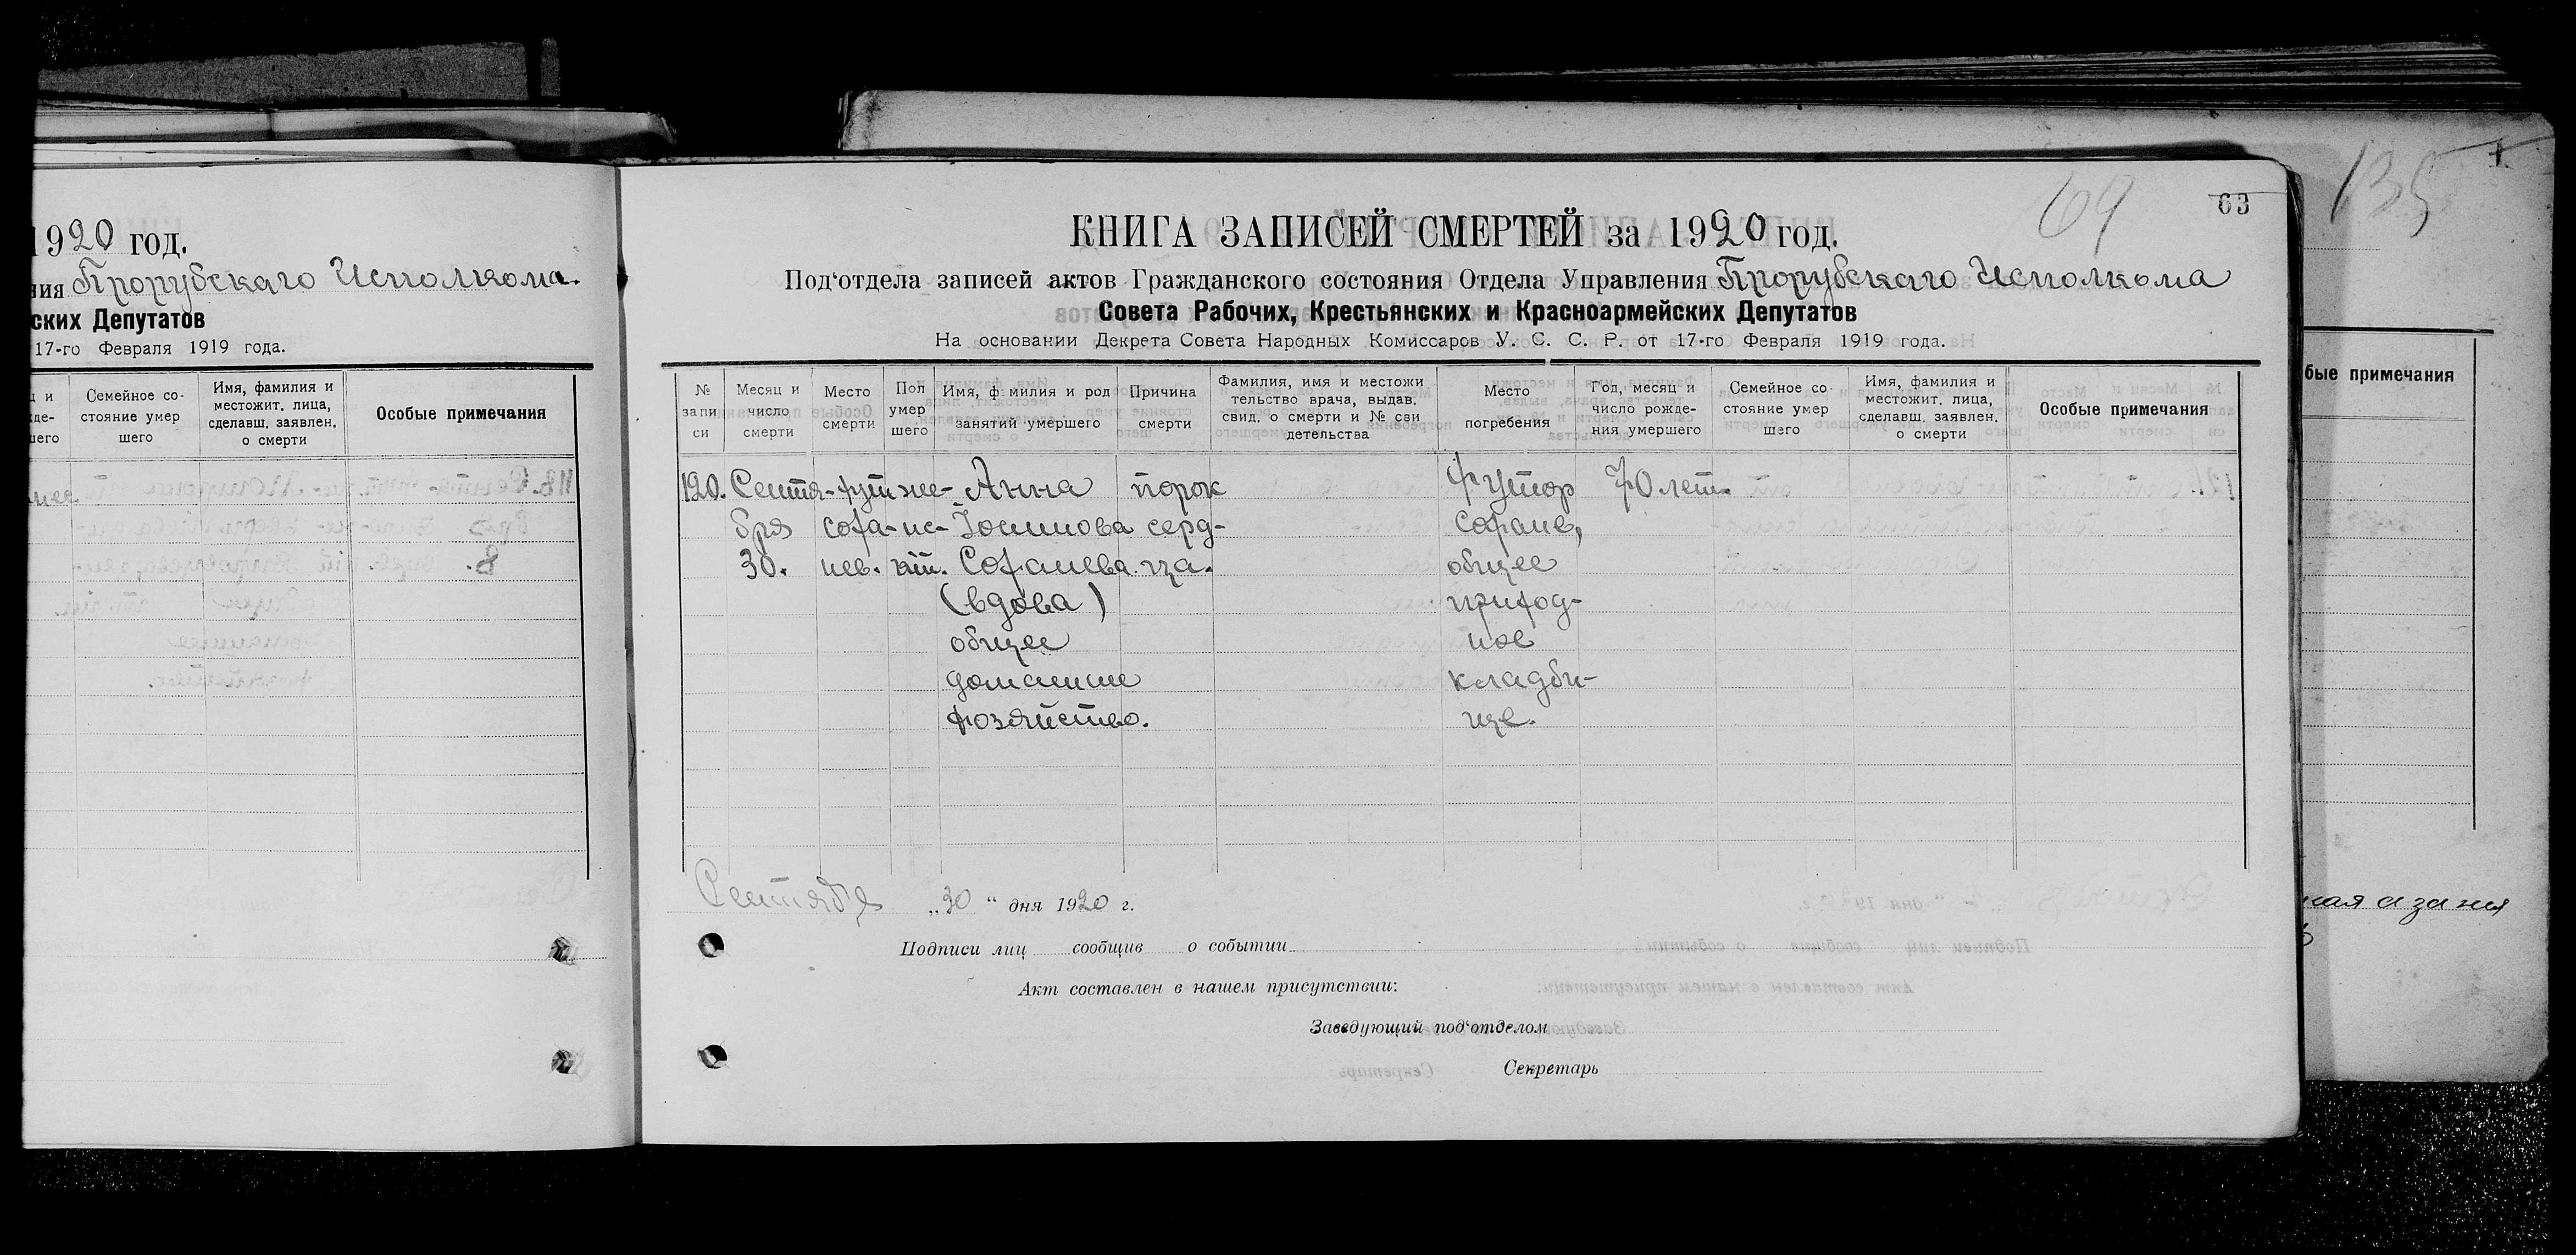 1920 год.
ния Прорубскаго Исполкома.
ских Депутатов
17-го Февраля 1919 года.
Семейное со-
стояние умер
шего
Имя, фамилия и
местожит. лица,
сделавш. заявлен.
о смерти
Особые примечания
64
63
КНИГА ЗАПИСЕЙ СМЕРТЕЙ за 1920 год.
Под‘отдела записей актов Гражданского состояния Отдела Управления Прорубскаго Исполкома
Совета Рабочих, Крестьянских и Красноармейских Депутатов
На основании Декрета Совета Народных Комиссаров У. С. С. Р. от 17-го Февраля 1919 года.
№
запи
си
Месяц и
число
смерти
Место
смерти
Пол
умер
шего
Имя, ф милия и род
занятий умершего
Причина
смерти
Фамилия, имя и местожи
тельство врача, выдав.
свид. о смерти и № сви
детельства
Место
погребения
Год, месяц и
число рожде-
ния умершего
Семейное со-
стояние умер
шего
Имя, фамилия и
местожит. лица,
сделавш. заявлен.
о смерти
Особые примечания
120.
Сентя-
бря
30.
хут
соха-
нев.
же-
нс-
кій.
Анна
Соханева
(вдова)
общее
домашнее
хозяйство.
порок
серд-
ца.
Хутор
Сохане,
общее
приход-
ное
кладби-
ще.
70 лет.
Сентября „30“ дня 1920 г.
Подписи лиц сообщив о событии
Акт составлен в нашем присутствии:
Заведующий под‘отделом
Секретарь
135
1.
бые примечания